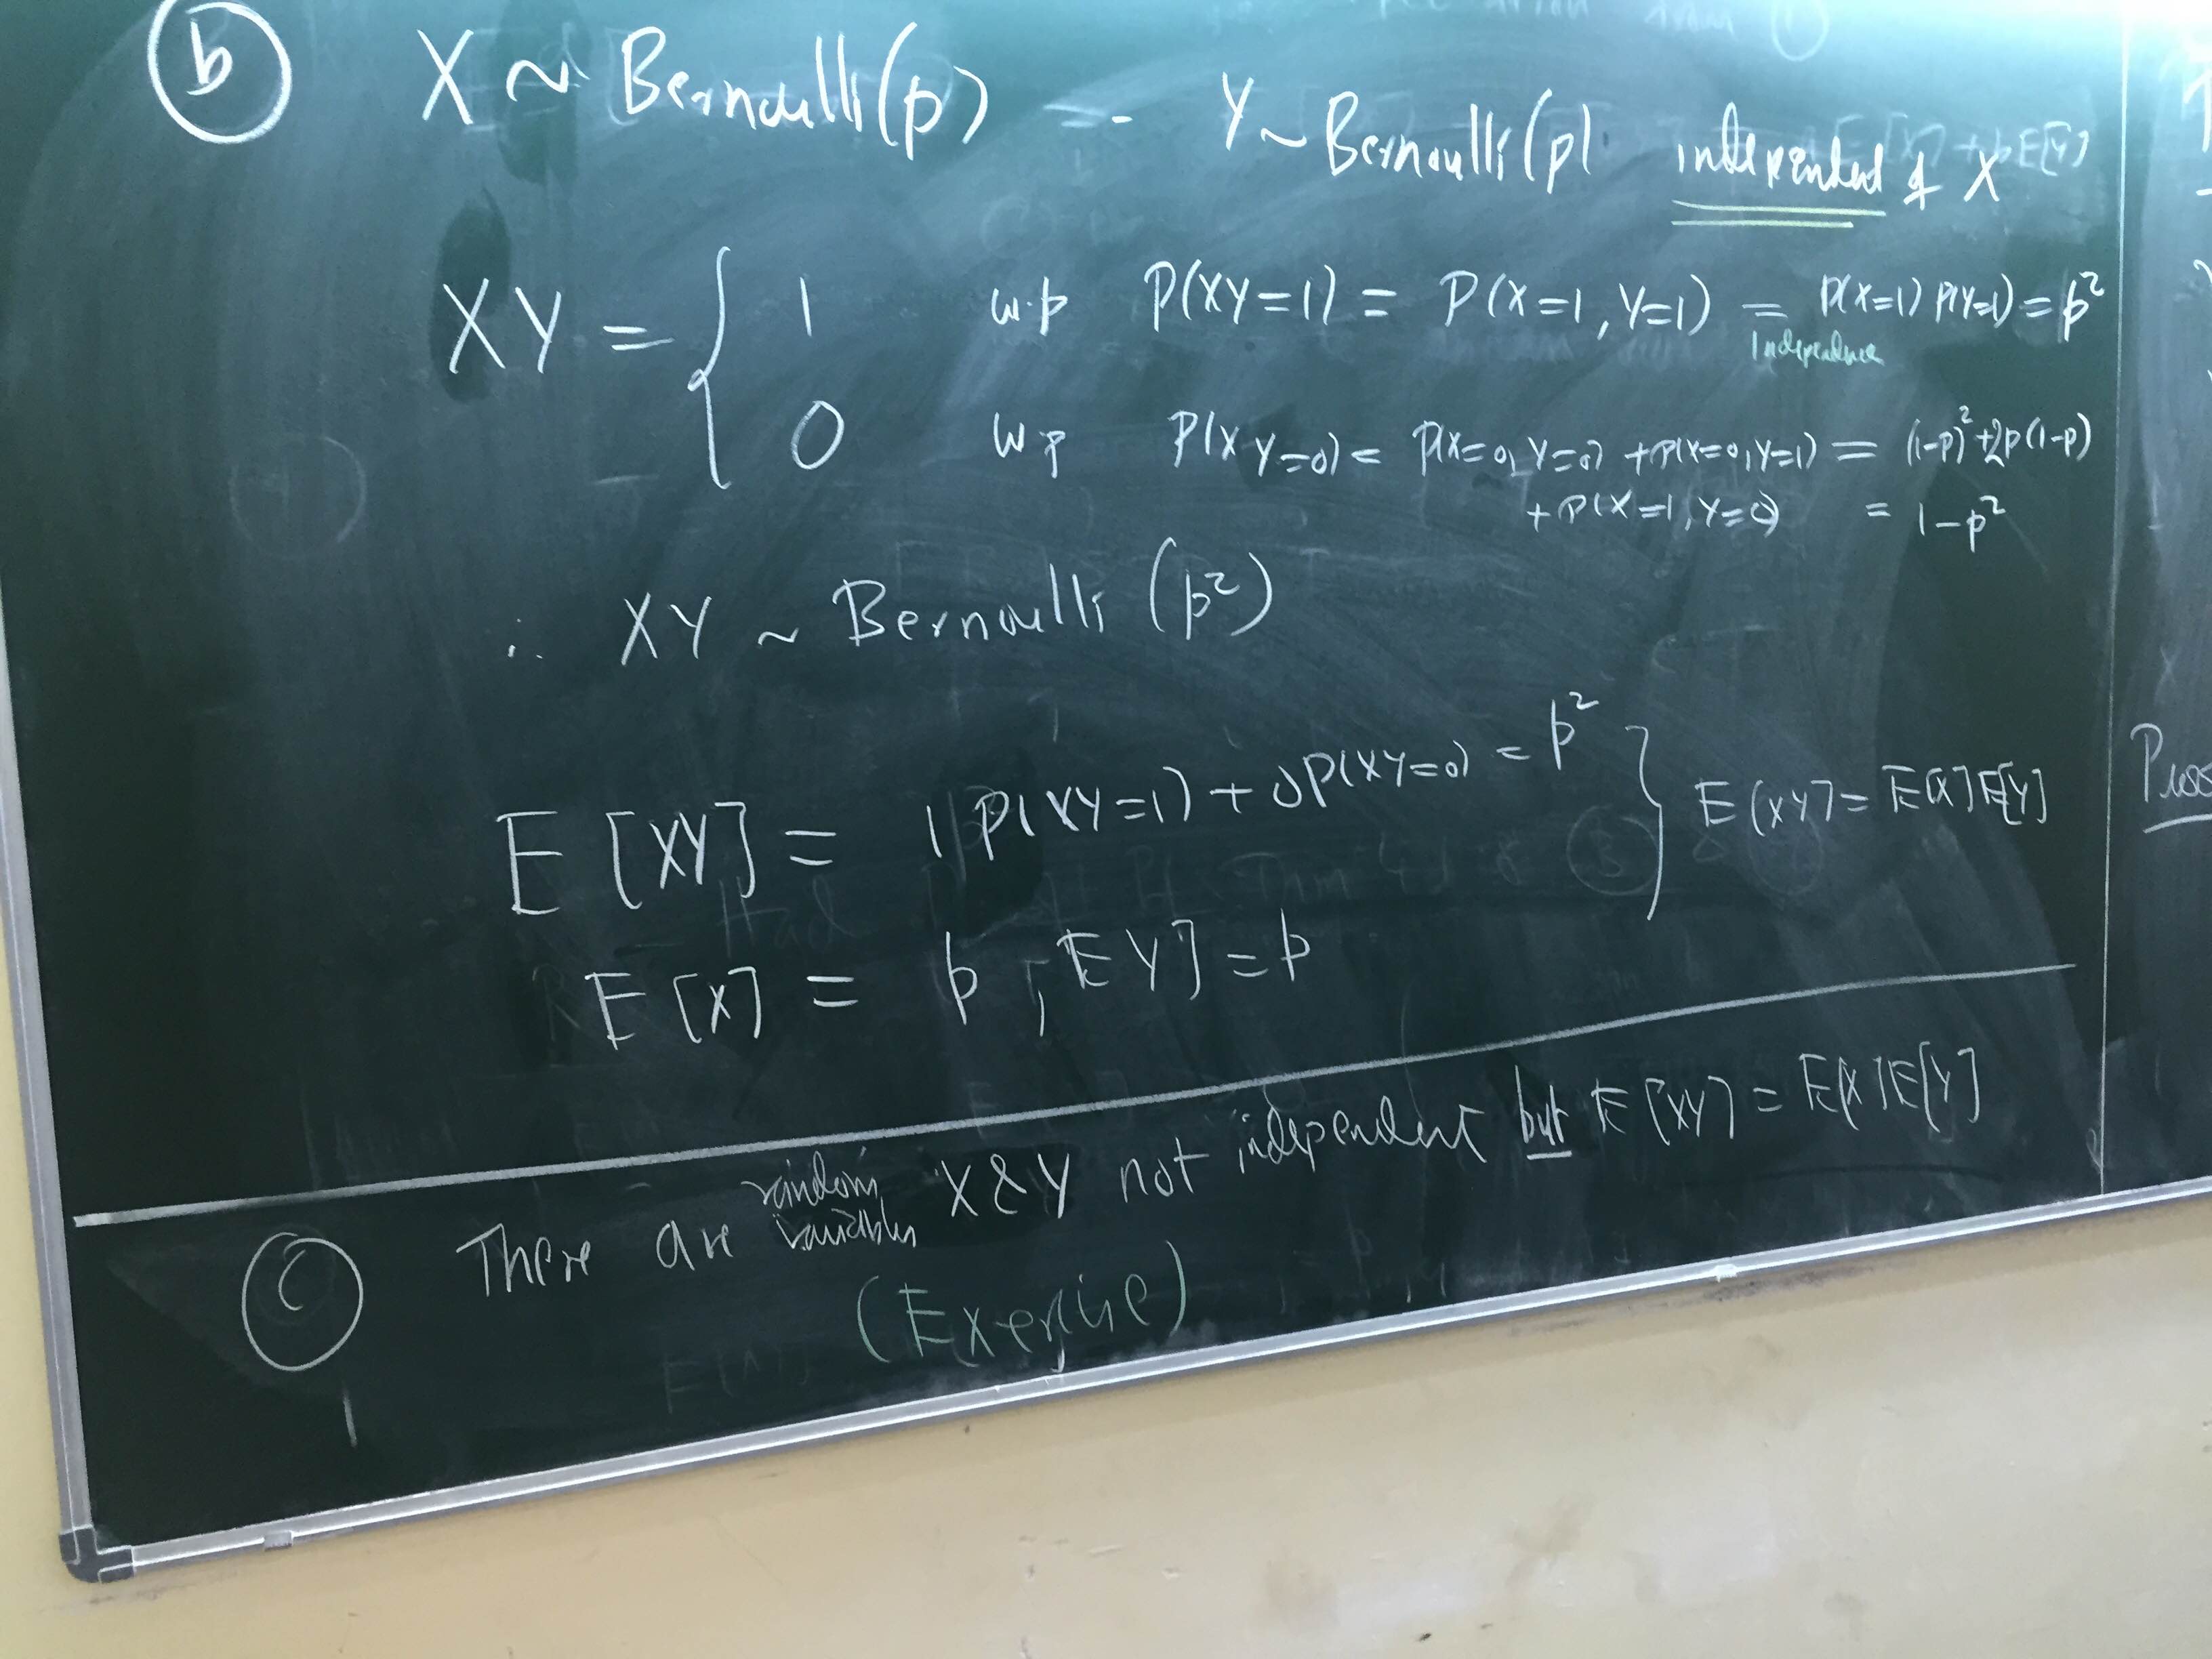 (b) X ~ Bernoulli(p) - Y ~ Bernoulli(p) independent of X
XY = { 1 w.p P(XY=1) = P(X=1, Y=1) = P(X=1) P(Y=1) = p²
Independence
0 w p P(XY=0) = P(X=0, Y=0) + P(X=0, Y=1) = (1-p)² + 2p(1-p)
+ P(X=1, Y=0) = 1-p²
∴ XY ~ Bernoulli (p²)
E [XY] = 1 P(XY=1) + 0P(XY=0) = p² } E[XY] = E[X] E[Y]
E [X] = p , E Y] = p
(c) There are random variables X & Y not independent but E [XY] = E[X] E[Y]
(Exercise)